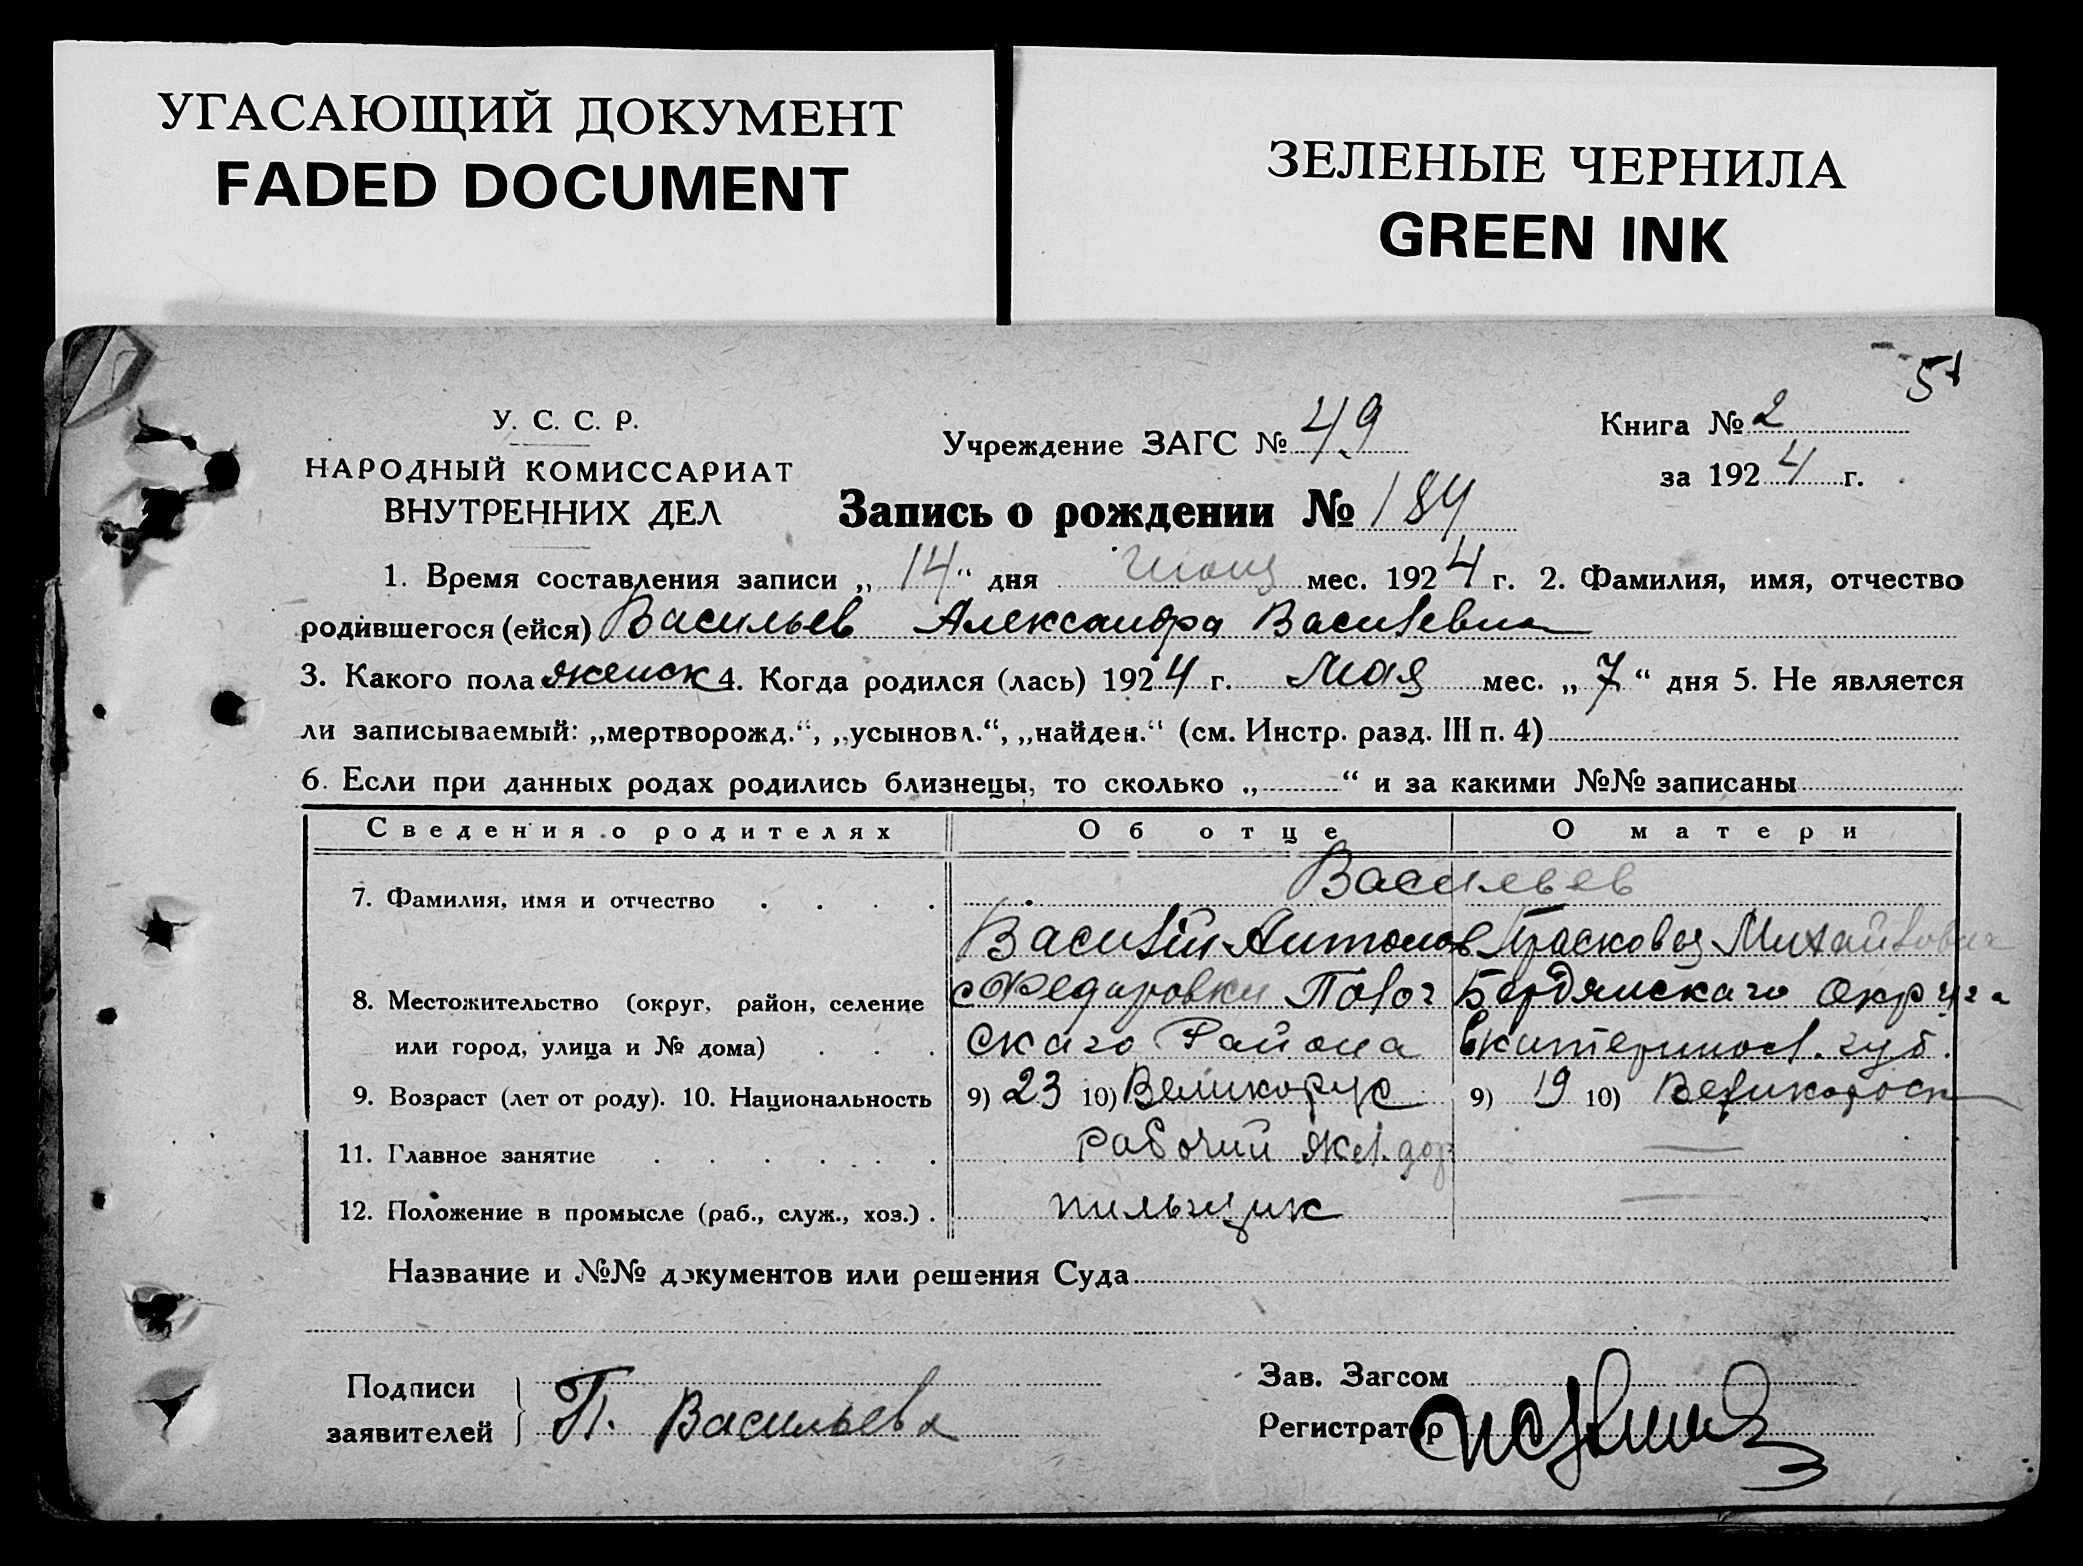 УГАСАЮЩИЙ ДОКУМЕНТ
FADED DOCUMENT
ЗЕЛЕНЫЕ ЧЕРНИЛА
GREEN INK
51
У. С. С. Р.
НАРОДНЫЙ КОМИССАРИАТ
ВНУТРЕННИХ ДЕЛ
Учреждение ЗАГС № 49
Книга № 2
за 1924 г.
Запись о рождении № 184
1. Время составления записи „14“ дня Июня мес. 1924 г. 2. Фамилия, имя, отчество
родившегося (ейся) Васильев Александра Василевна
3. Какого пола женск 4. Когда родился (лась) 1924 г. Мая мес. „7“ дня 5. Не является
ли записываемый: „мертворожд.“, „усыновл.“, „найден.“ (см. Инстр. разд. III п. 4)
6. Если при данных родах родились близнецы, то сколько „ “ и за какими №№ записаны
Сведения о родителях Об отце О матери
Васильев
7. Фамилия, имя и отчество
Василий Антонов Прасковея Михайловна
8. Местожительство (округ, район, селение с Федаровки Полог Бердянскаго Округа
или город, улица и № дома) скаго Района Екатеринosл. губ.
9. Возраст (лет от роду). 10. Национальность 9) 23 10) Великорус 9) 19 10) Великорос
11. Главное занятие Рабочий Жел. дор
12. Положение в промысле (раб., служ., хоз.) пильщик
Название и №№ документов или решения Суда
Подписи
заявителей
П. Васильева
Зав. Загсом
Регистратор